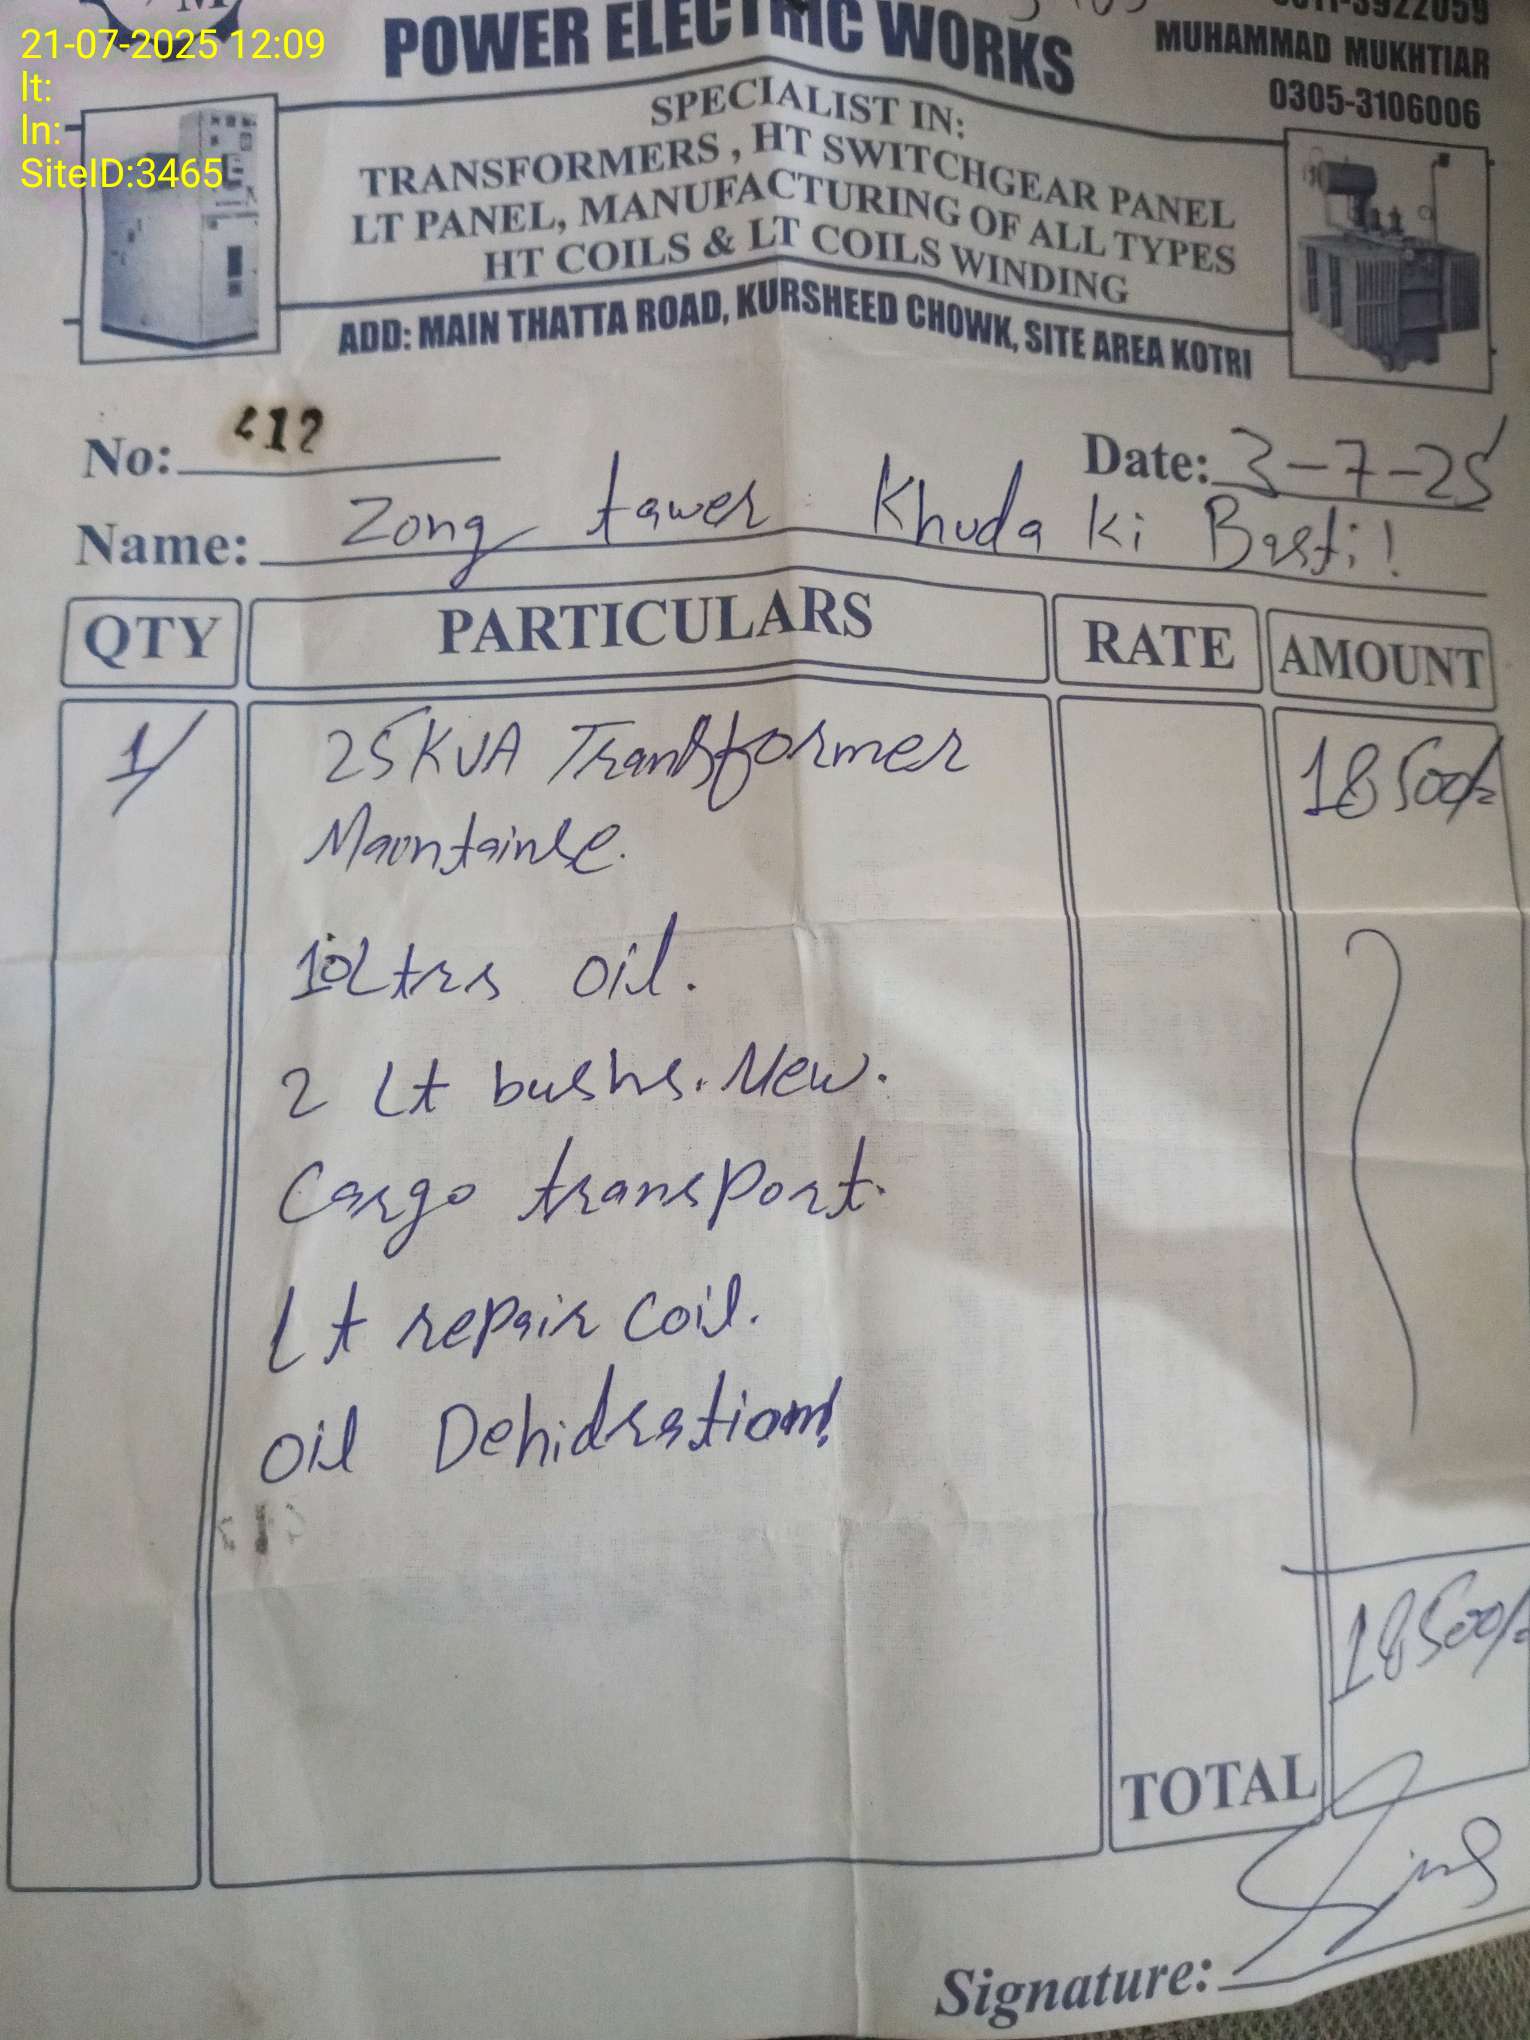 21-07-2025 12:09
lt:
ln:
SiteID:3465
M
POWER ELECTRIC WORKS
MUHAMMAD MUKHTIAR
0305-3106006
SPECIALIST IN:
TRANSFORMERS , HT SWITCHGEAR PANEL
LT PANEL, MANUFACTURING OF ALL TYPES
HT COILS & LT COILS WINDING
ADD: MAIN THATTA ROAD, KURSHEED CHOWK, SITE AREA KOTRI
No: 412
Date: 3-7-25
Name: Zong tawer Khuda Ki Basti!
QTY PARTICULARS RATE AMOUNT
1/ 25KVA Transformer 18500/=
Maontainse.
10Ltrs oil.
2 Lt bushs. New.
Cargo transport.
Lt repair coil.
oil Dehidration!
18500/=
TOTAL
Signature: